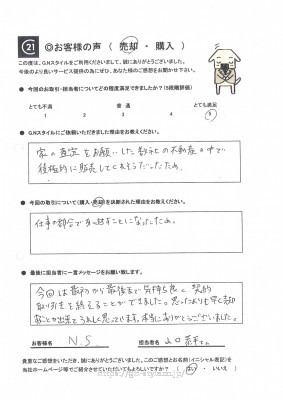 21 ◎お客様の声 ( 売却 ・ 購入 )
この度は、G.Nスタイルをご利用くださいまして、誠にありがとうございました。
今後のより良いサービス提供の為にぜひ、あなた様のご感想をお聞かせ下さい。
● 今回のお取引・担当者についてどの程度満足できましたか? (5段階評価)
とても不満 普通 とても満足
1 2 3 4 5
● G.Nスタイルにご依頼いただきました理由をお教えください。
家の査定をお願いした数社の不動産の中で
積極的に販売してくれそうだったため。
● 今回の取引について(購入・売却)を決断された理由をお教えください。
仕事の都合で引っ越すことになったため。
● 最後に担当者に一言メッセージをお願い致します。
今回は最初から最後まで気持ち良く契約
取引きを終えることができました。思ったよりも早く売却
することが出来てうれしく思っています。本当にありがとうございました。
お客様名 N.S. 担当者名 山口恭平さん
貴重なご感想をいただき、誠にありがとうございました。このご感想とお名前(イニシャル表記)を
当社ホームページ等でご紹介させていただいてもよろしいですか? ( はい ・ いいえ )